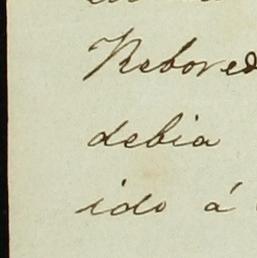 Rebored
debia
ido á